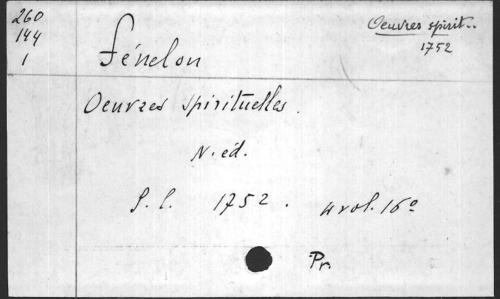 260
144
1
Oeuvres spirit..
1752
Fénelon
Oeuvres spirituelles.
N. éd.
S. l. 1752. 4 vol. 16°
Pr